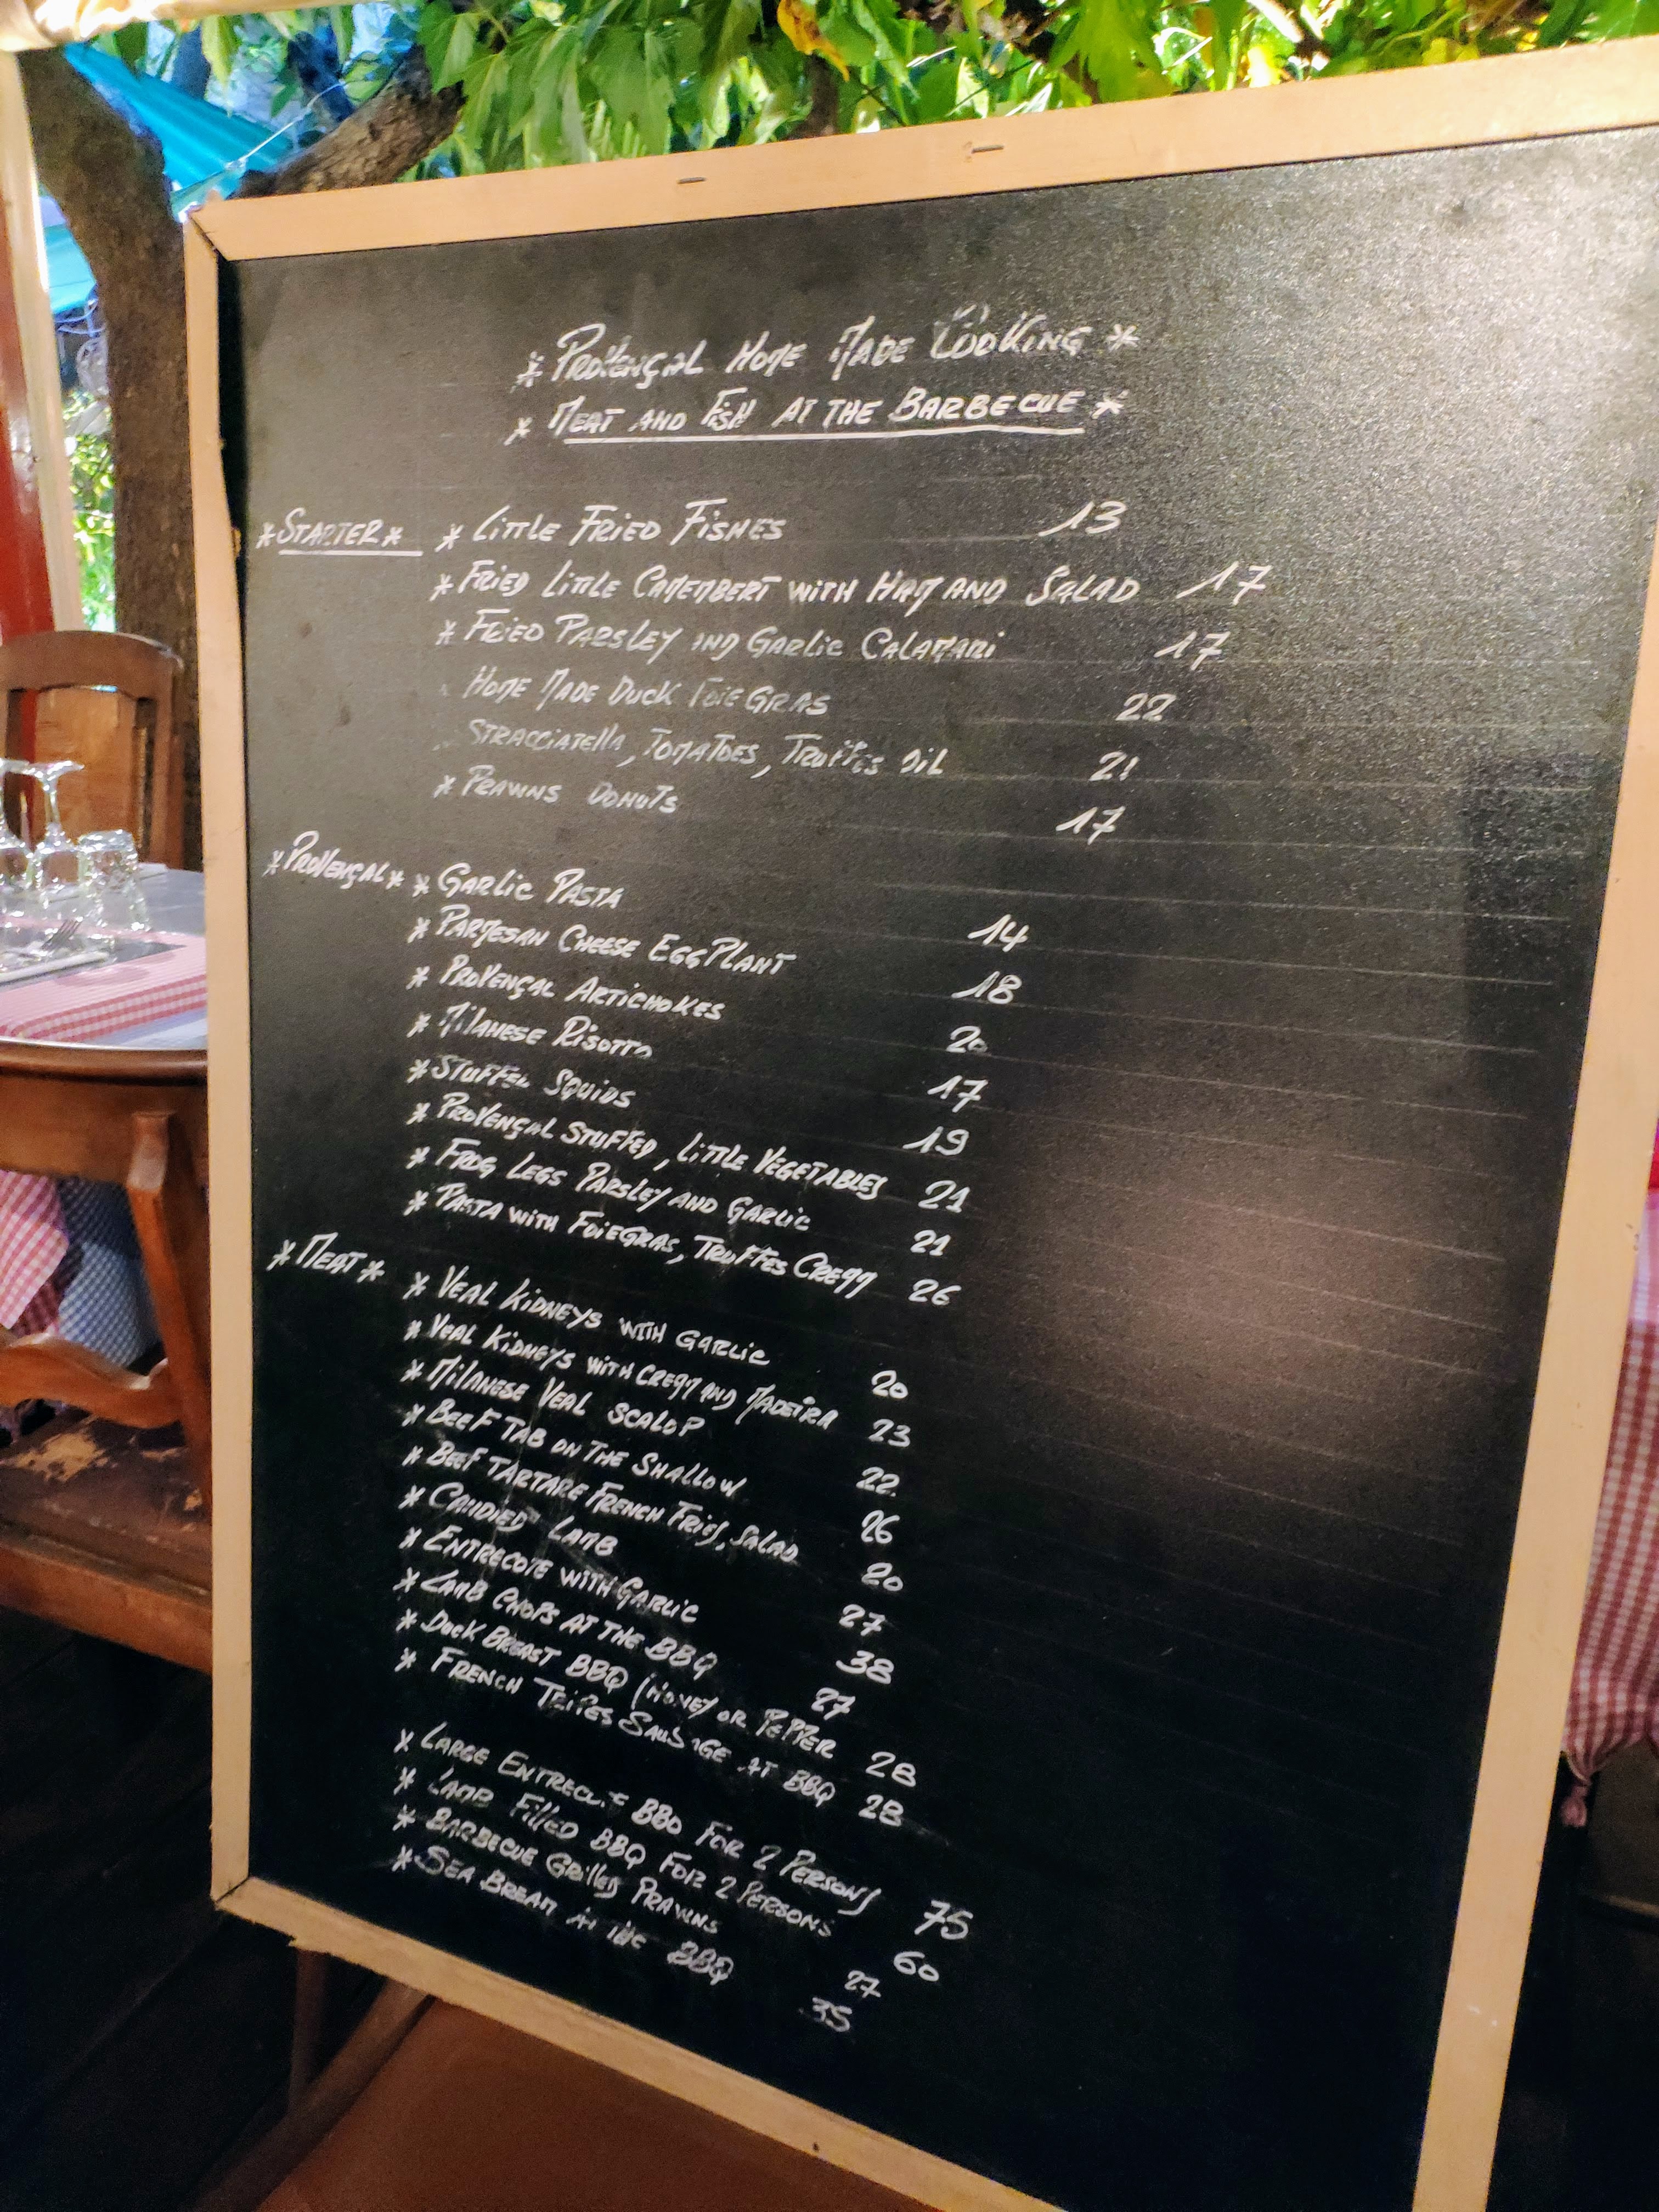 * PROVENÇAL HOME MADE COOKING *
* MEAT AND FISH AT THE BARBECUE *
*STARTER* * LITTLE FRIED FISHES 13
* FRIED LITTLE CAMEMBERT WITH HAM AND SALAD 17
* FRIED PARSLEY AND GARLIC CALAMARI 17
HOME MADE DUCK FOIE GRAS 22
STRACCIATELLA, TOMATOES, TRUFFES OIL 21
* PRAWNS DONUTS 17
*PROVENÇAL* * GARLIC PASTA 14
* PARMESAN CHEESE EGGPLANT 18
* PROVENÇAL ARTICHOKES 20
* MILANESE RISOTTO 17
* STUFFED SQUIDS 19
* PROVENÇAL STUFFED, LITTLE VEGETABLES 21
* FROG LEGS PARSLEY AND GARLIC 21
* PASTA WITH FOIEGRAS, TRUFFES CREAM 26
*MEAT* * VEAL KIDNEYS WITH GARLIC 20
* VEAL KIDNEYS WITH CREAM AND MADEIRA 23
* MILANESE VEAL SCALOP 22
* BEEF TAB ON THE SHALLOW 26
* BEEF TARTARE FRENCH FRIES, SALAD 20
* CANDIED LAMB 27
* ENTRECOTE WITH GARLIC 38
* LAMB CHOPS AT THE BBQ 27
* DUCK BREAST BBQ (HONEY OR PEPPER 28
* FRENCH TRIPES SAUSAGE AT BBQ 28
* LARGE ENTRECOTE BBQ FOR 2 PERSONS 75
* LAMB FILLED BBQ FOR 2 PERSONS 60
* BARBECUE GRILLED PRAWNS 27
* SEA BREAM AT THE BBQ 35